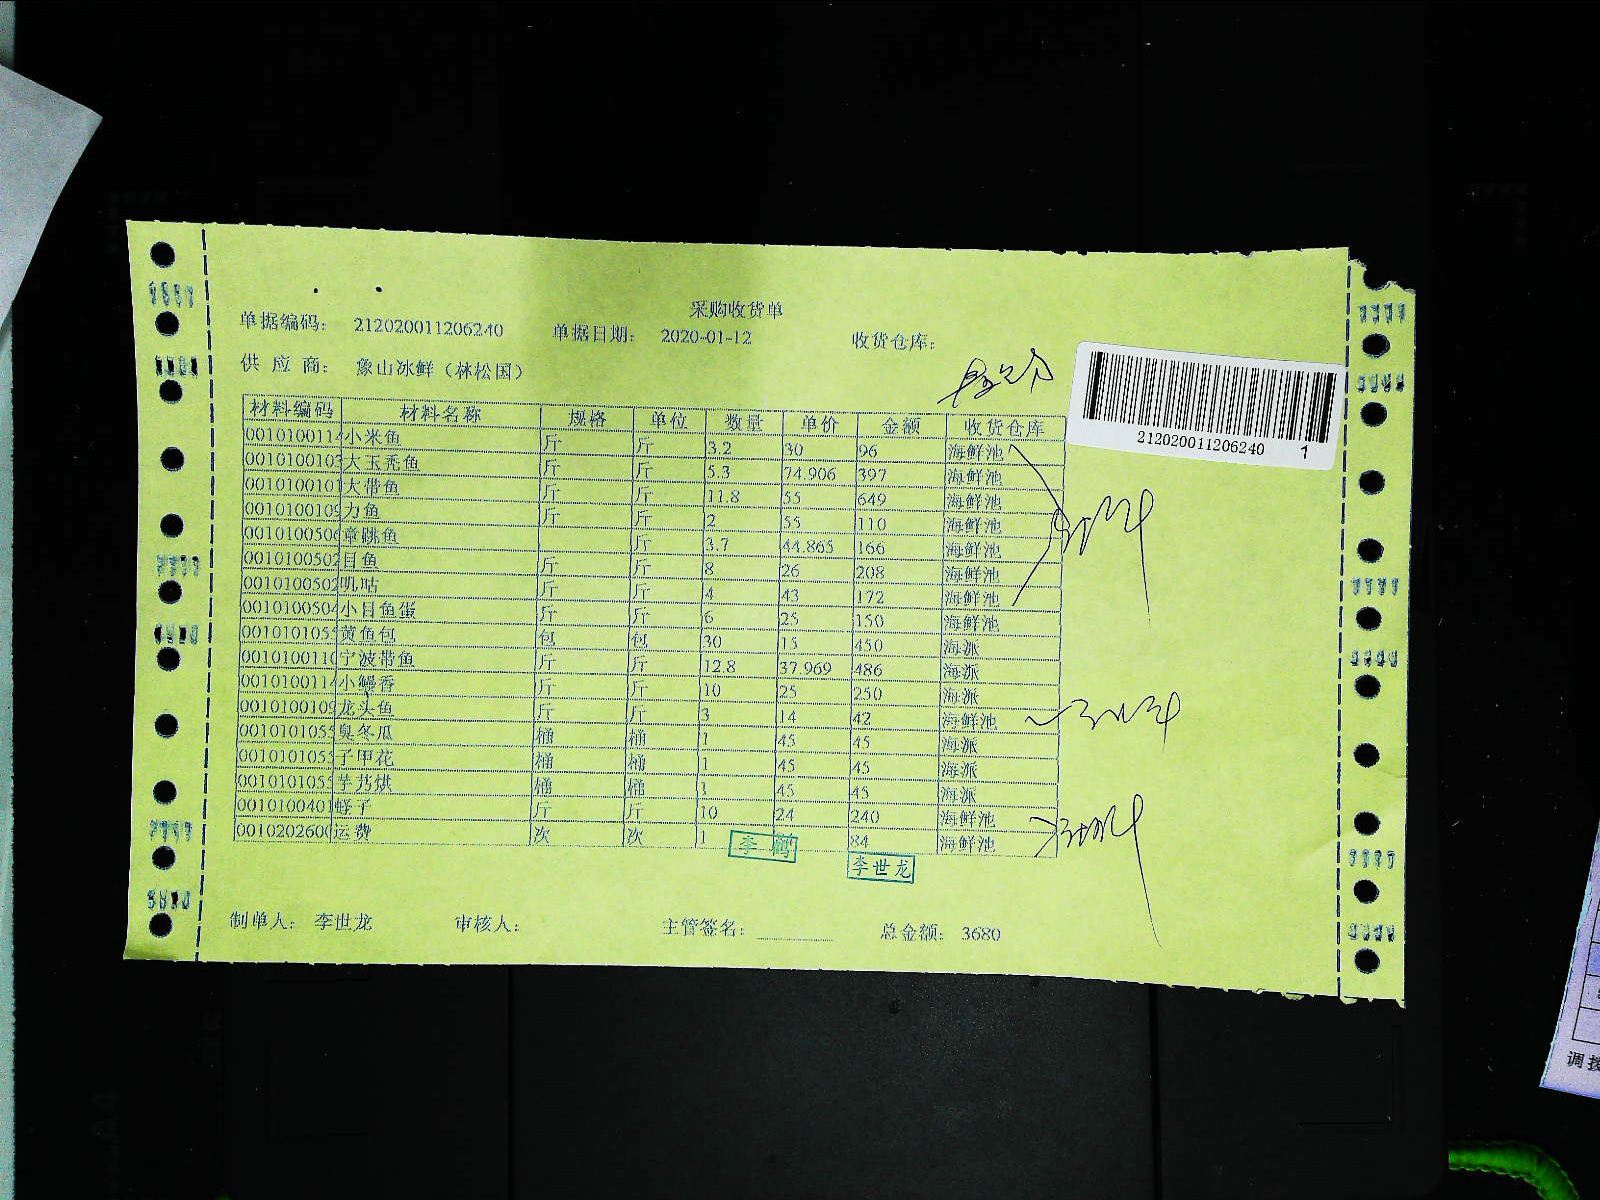 采购收货单
单据编码： 212020011206240 单据日期： 2020-01-12 收货仓库：
供 应 商： 象山冰鲜（林松国）
212020011206240 1
材料编码 材料名称 规格 单位 数量 单价 金额 收货仓库
0010100114 小米鱼 斤 斤 3.2 30 96 海鲜池
0010100103 大玉秃鱼 斤 斤 5.3 74.906 397 海鲜池
0010100101 大带鱼 斤 斤 11.8 55 649 海鲜池
0010100109 力鱼 斤 斤 2 55 110 海鲜池
0010100506 章跳鱼 斤 3.7 44.865 166 海鲜池
0010100502 目鱼 斤 斤 8 26 208 海鲜池
0010100502 叽咕 斤 斤 4 43 172 海鲜池
0010100504 小目鱼蛋 斤 斤 6 25 150 海鲜池
0010101055 黄鱼包 包 包 30 15 450 海派
0010100110 宁波带鱼 斤 斤 12.8 37.969 486 海派
0010100114 小鳗香 斤 斤 10 25 250 海派
0010100109 龙头鱼 斤 斤 3 14 42 海鲜池
0010101055 臭冬瓜 桶 桶 1 45 45 海派
0010101055 子甲花 桶 桶 1 45 45 海派
0010101055 芋艿烘 桶 桶 1 45 45 海派
0010100401 蛏子 斤 斤 10 24 240 海鲜池
0010202600 运费 次 次 1 84 海鲜池
李 鹤
李世龙
制单人： 李世龙 审核人： 主管签名： 总金额： 3680